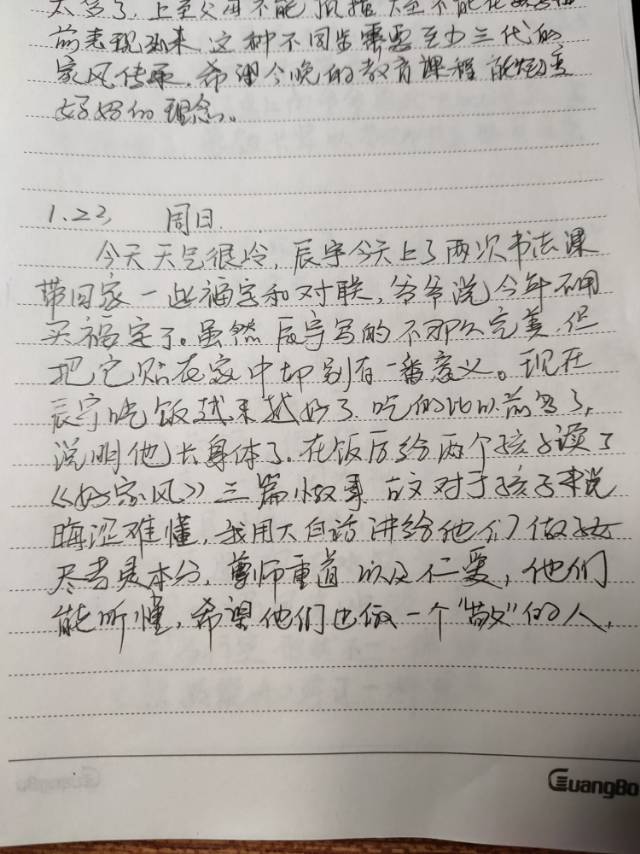 太多了，上至父母不能
前表现出来，这种不同步需要至少三代的
家风传承，希望今晚的教育课程能
好好的理念。
1.22, 周日
今天天气很冷，辰宇今天上了两次书法课
带回家一些福字和对联，爷爷说今年不用
买福字了。虽然辰宇写的不那么完美，但
把它贴在家中却别有一番意义。现在
辰宇吃饭越来越好了，吃的比以前多了，
说明他长身体了。在饭后给两个孩子读了
《好家风》三篇故事，古文对于孩子来说
晦涩难懂，我用大白话讲给他们做子女
尽孝是本分，尊师重道以及仁爱，他们
能听懂，希望他们也做一个“敬”的人，
GuangBo